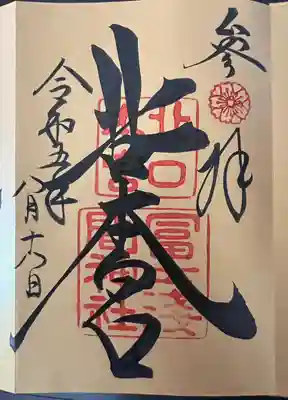 參拝
北口本宮
北口
本宮
冨士浅
間神社
令和五年
八月十六日